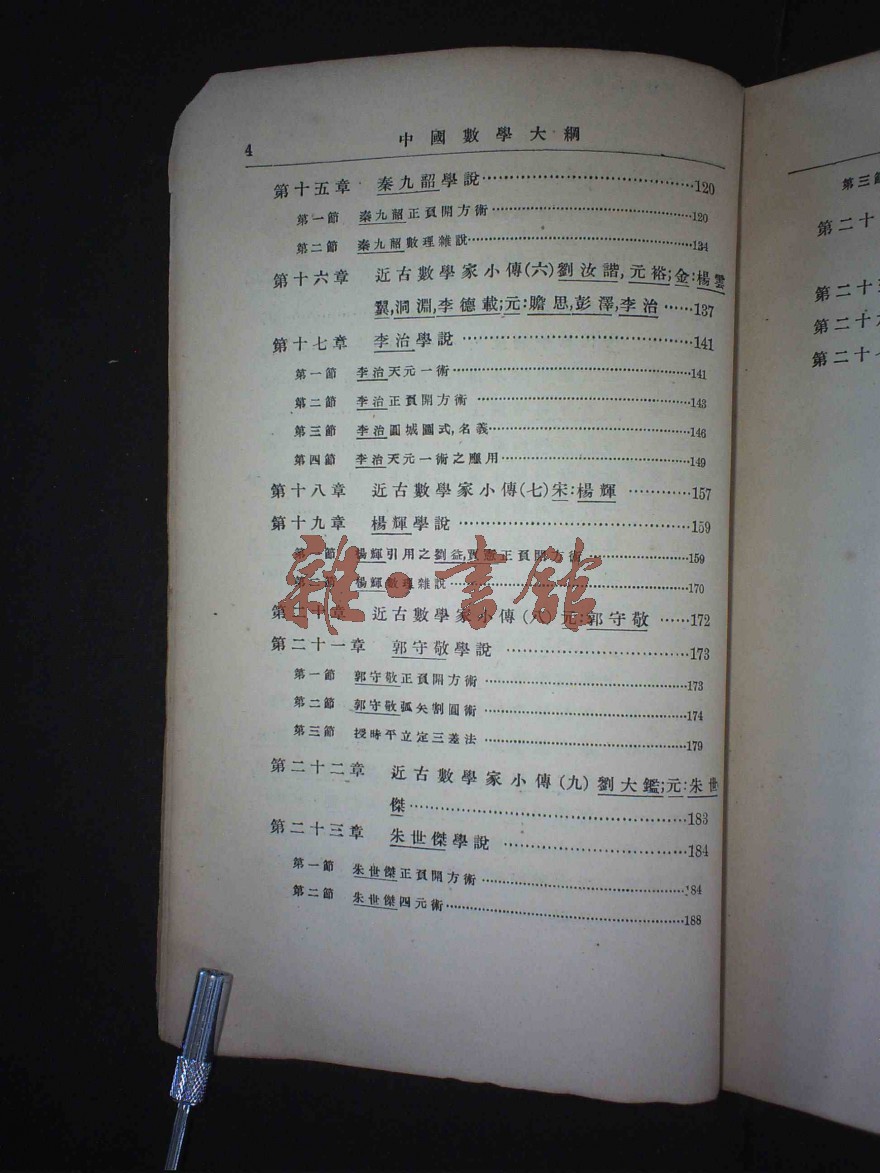 4 中國數學大綱
第十五章 秦九韶學說……120
第一節 秦九韶正負開方術……120
第二節 秦九韶數理雜說……134
第十六章 近古數學家小傳(六)劉汝諧,元裕;金:楊雲
翼,洞淵,李德載;元:贍思,彭澤,李治……137
第十七章 李治學說……141
第一節 李治天元一術……141
第二節 李治正負開方術……143
第三節 李治圓城圖式,名義……146
第四節 李治天元一術之應用……149
第十八章 近古數學家小傳(七)宋:楊輝……157
第十九章 楊輝學說……159
第一節 楊輝引用之劉益,賈憲正負開方術……159
第二節 楊輝數理雜說……170
第二十章 近古數學家小傳(八)元:郭守敬……172
第二十一章 郭守敬學說……173
第一節 郭守敬正負開方術……173
第二節 郭守敬弧矢割圓術……174
第三節 授時平立定三差法……179
第二十二章 近古數學家小傳(九)劉大鑑;元:朱世
傑……183
第二十三章 朱世傑學說……184
第一節 朱世傑正負開方術……184
第二節 朱世傑四元術……188
雜·書館
第三節
第二十
第二十
第二十
第二十